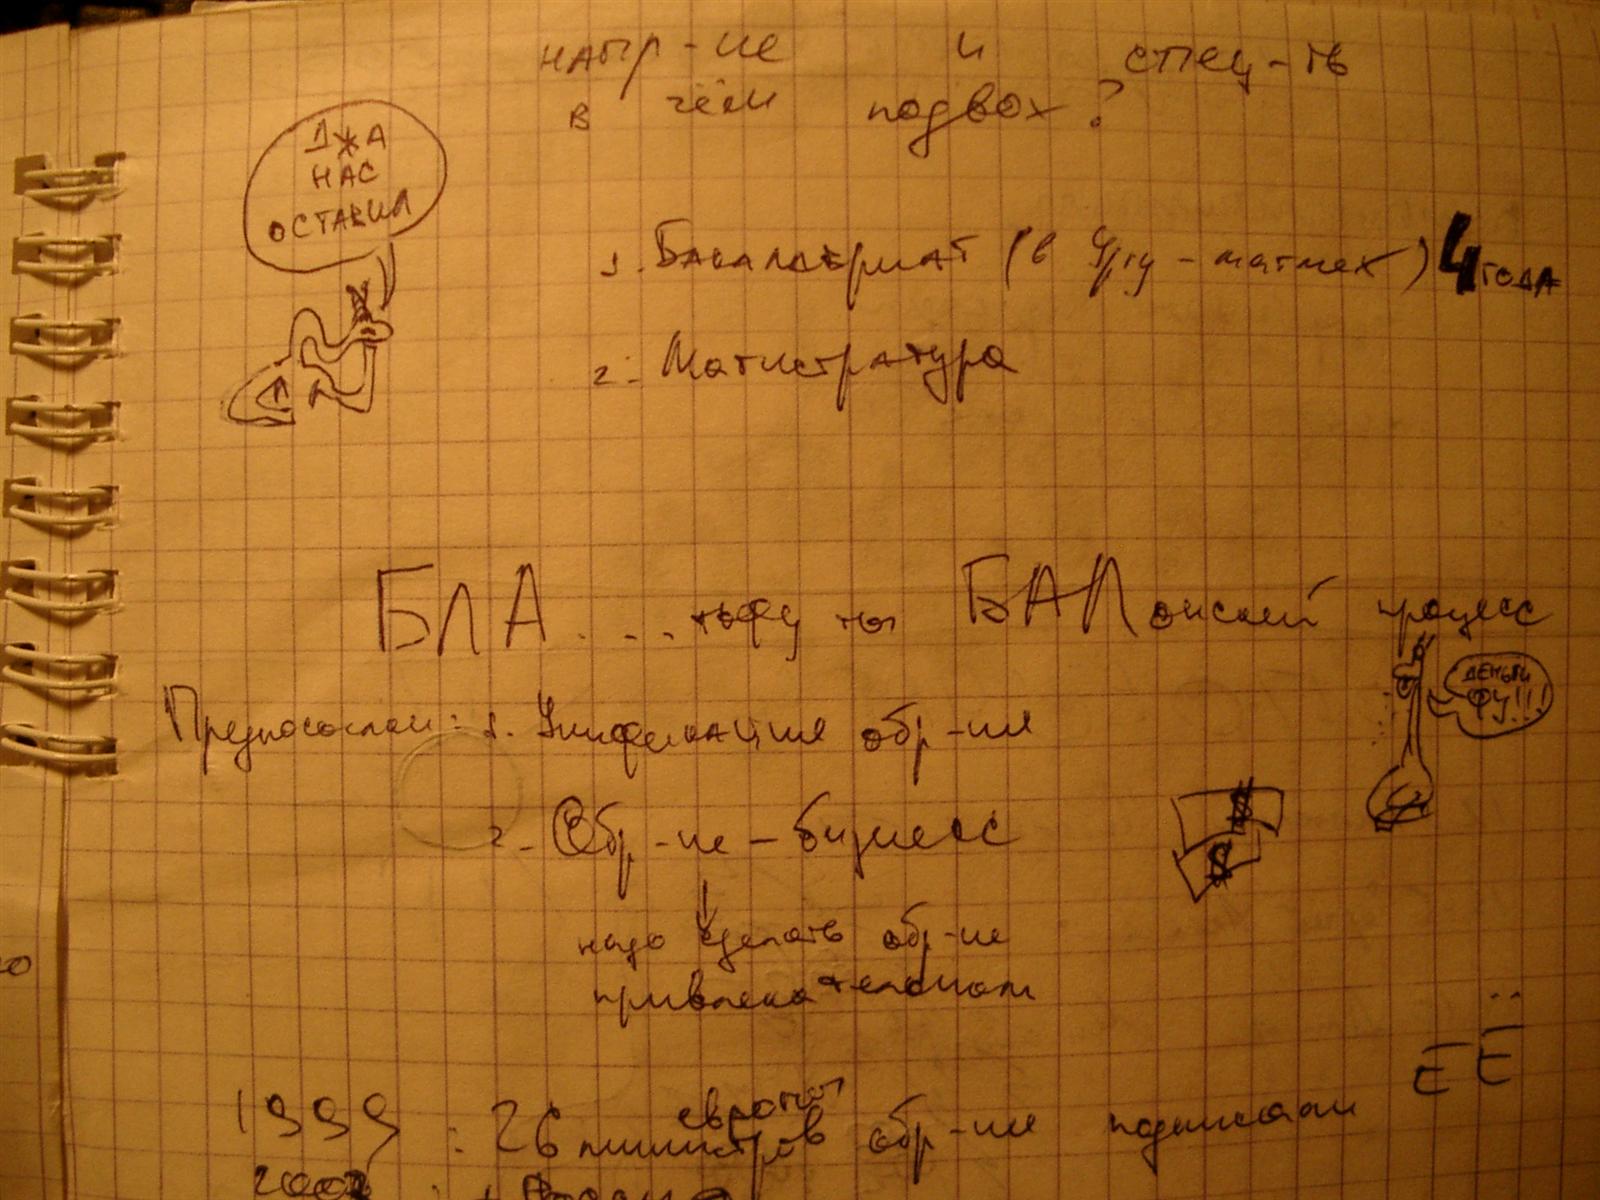 напр-ие и спец-ть
в чём подвох?
ДЖА
НАС
ОСТАВИЛ
1. Бакалавриат (в УрГУ - матмех) 4 ГОДА
2. Магистратура
БЛА.... тьфу ты БАЛонский процесс
ДЕНЬГИ
ФУ!!!
Предпосылки: 1. Унификация обр-ия
2. Обр-ие - бизнес
$
$
надо сделать обр-ие
привлекательным
ЕЁ
1999 : 26 министров обр-ия подписали
европы
: + России
ю